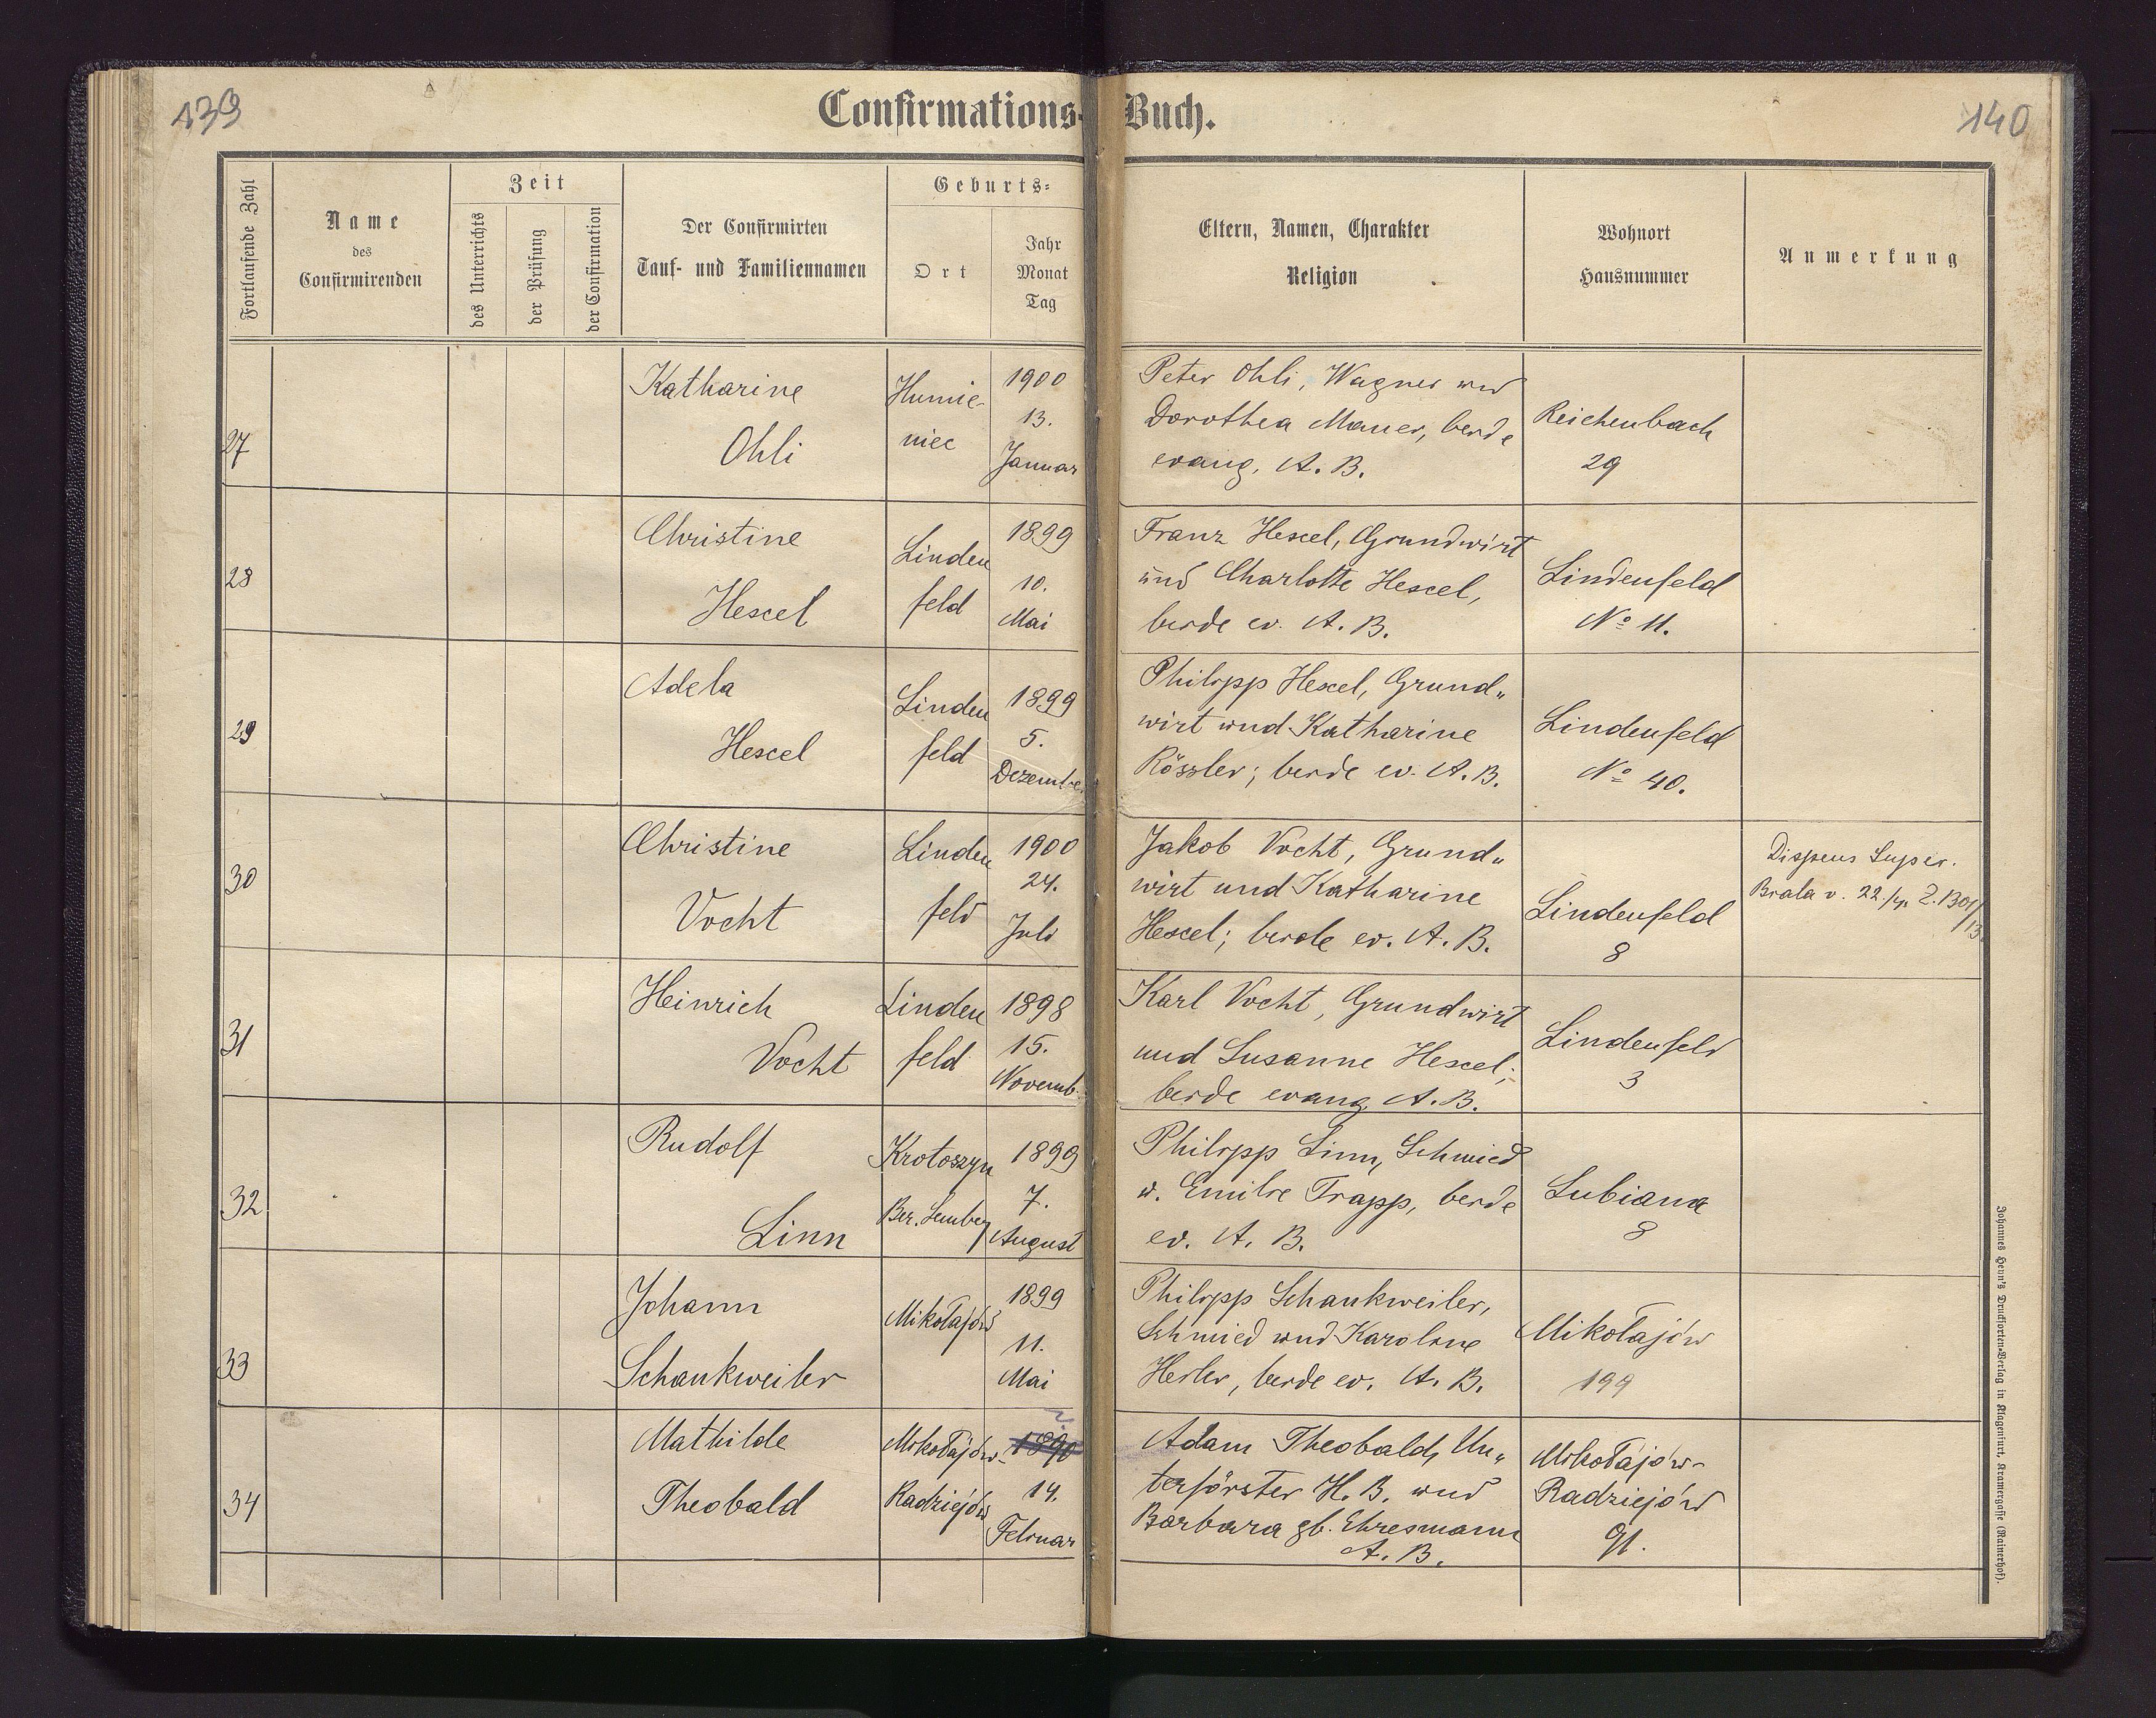 139
Confirmations-Buch.
140
Fortlaufende Zahl
Name
des
Confirmirenden
Zeit
des Unterrichts
der Prüfung
der Confirmation
Der Confirmirten
Tauf- und Familiennamen
Geburts-
Ort
Jahr
Monat
Tag
Eltern, Namen, Charakter
Religion
Wohnort
Hausnummer
Anmerkung
27
Katharine
Ohli
Humie-
niec
1900
13.
Januar
Peter Ohli, Wagner und
Dorothea Mauer, beide
evang. A. B.
Reichenbach
29
28
Christine
Hexel
Linden
feld
1899
10.
Mai
Franz Hexel, Grundwirt
und Charlotte Hexel,
beide ev. A. B.
Lindenfeld
No 11.
29
Adela
Hexel
Linden
feld
1899
5.
Dezember
Philipp Hexel, Grund„
wirt und Katharine
Rössler; beide ev. A. B.
Lindenfeld
No 40.
30
Christine
Vocht
Linden
feld
1900
24.
Juli
Jakob Vocht, Grund„
wirt und Katharine
Hexel; beide ev. A. B.
Lindenfeld
8
Dispens Super.
Biala v. 22./4. Z. 1301/13
31
Heinrich
Vocht
Linden
feld
1898
15.
Novemb.
Karl Vocht, Grundwirt
und Susanne Hexel;
beide evang. A. B.
Lindenfeld
3
32
Rudolf
Linn
Krotoszyn
Bez. Lemberg
1899
7.
August
Philipp Linn, Schmied
u. Emilie Trapp, beide
ev. A. B.
Lubiana
8
33
Johann
Schankweiler
Mikołajów
1899
11.
Mai
Philipp Schankweiler,
Schmied und Karoline
Herler, beide ev. A. B.
Mikołajów
199
34
Mathilde
Theobald
Mikołajów-
Radziejów
14.
Februar
Adam Theobald, Un„
terförster H. B. und
Barbara gb. Ehresmann
A. B.
Mikołajów-
Radziejów
91.
Johannes Heyn's Drucksorten-Verlag in Klagenfurt, Kramergasse (Rainerhof).